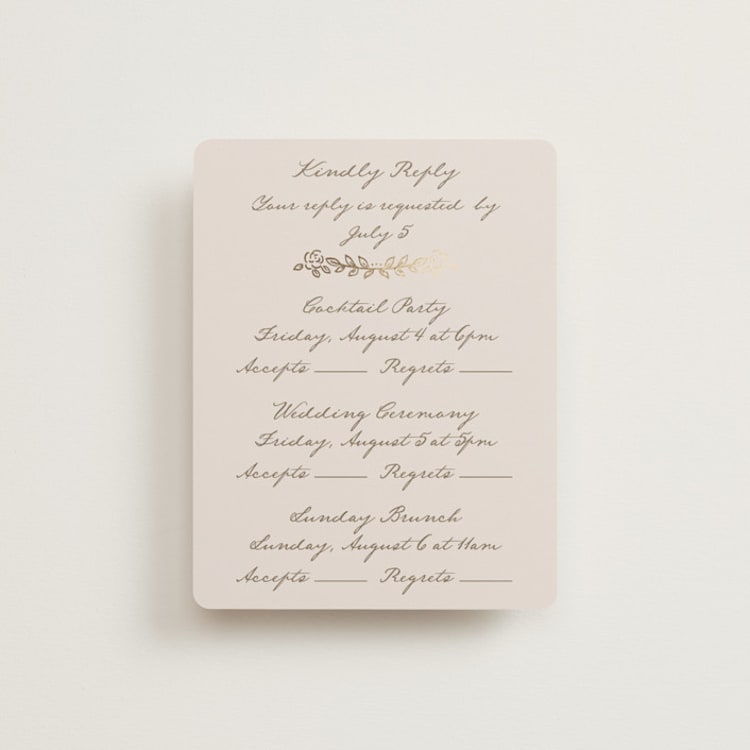 Kindly Reply
Your reply is requested by
July 5
Cocktail Party
Friday, August 4 at 6pm
Accepts _____ Regrets _____
Wedding Ceremony
Friday, August 5 at 5pm
Accepts _____ Regrets _____
Sunday Brunch
Sunday, August 6 at 11am
Accepts _____ Regrets _____